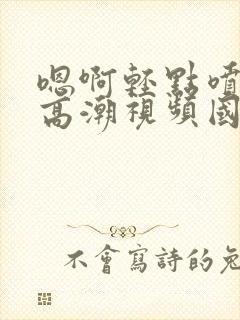 嗯啊輕點噴
高潮視頻國
不會寫詩的兔